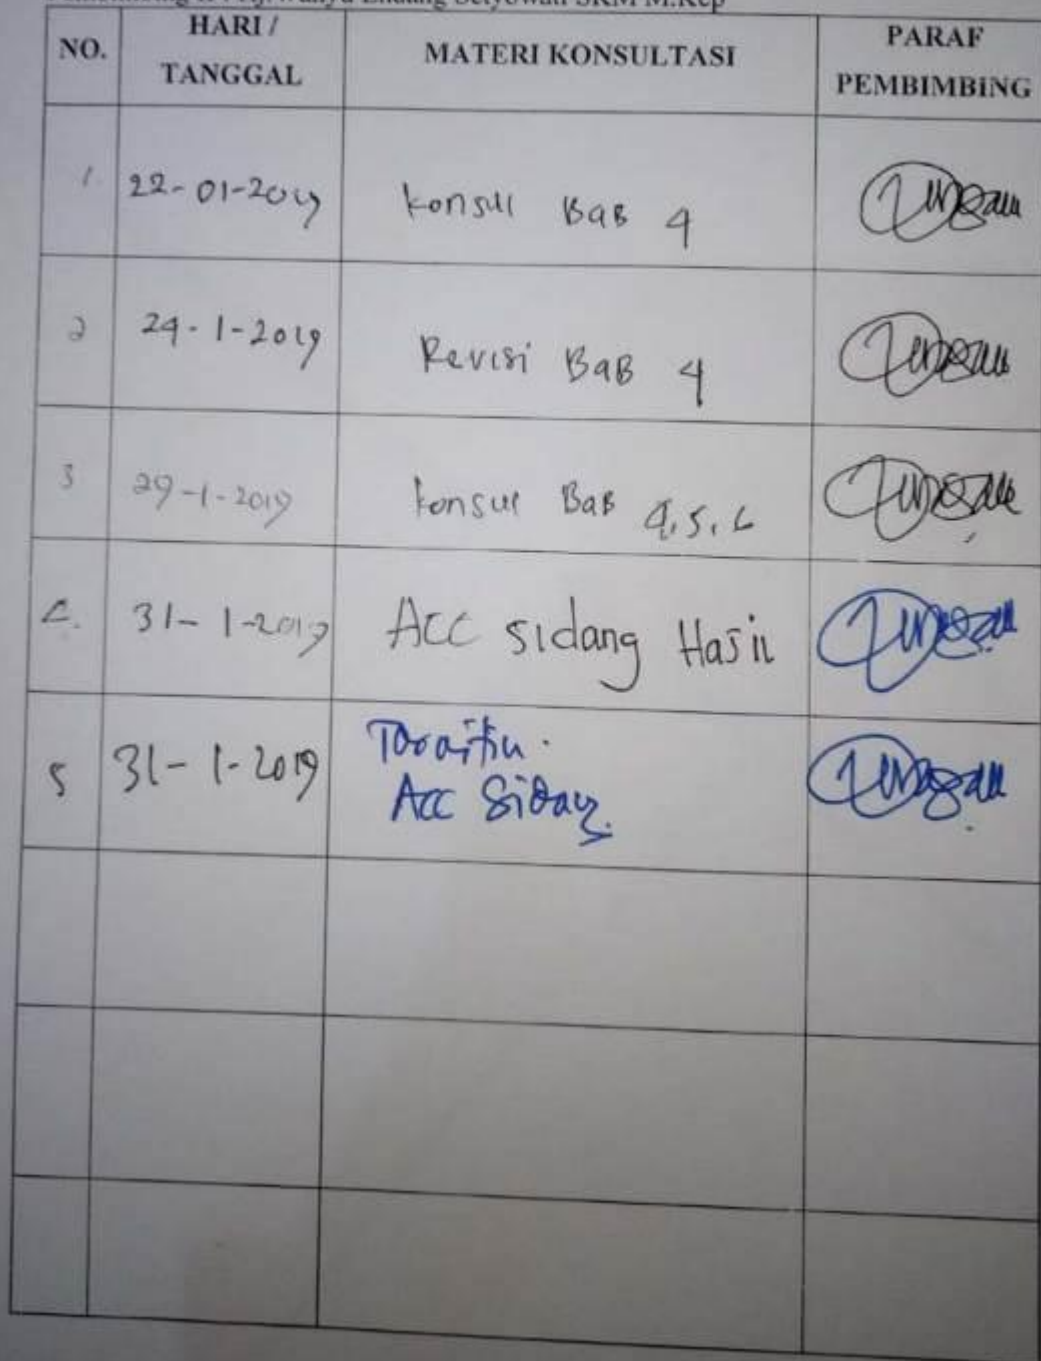 Endang Setyowati SKM M.Kep
NO. HARI / TANGGAL MATERI KONSULTASI PARAF PEMBIMBING
1. 22-01-2019 konsul BaB 4
2 24-1-2019 Revisi BaB 4
3 29-1-2019 konsul BaB 4, 5, 6
4. 31-1-2019 ACC sidang Hasil
5 31-1-2019
Acc Sidang.